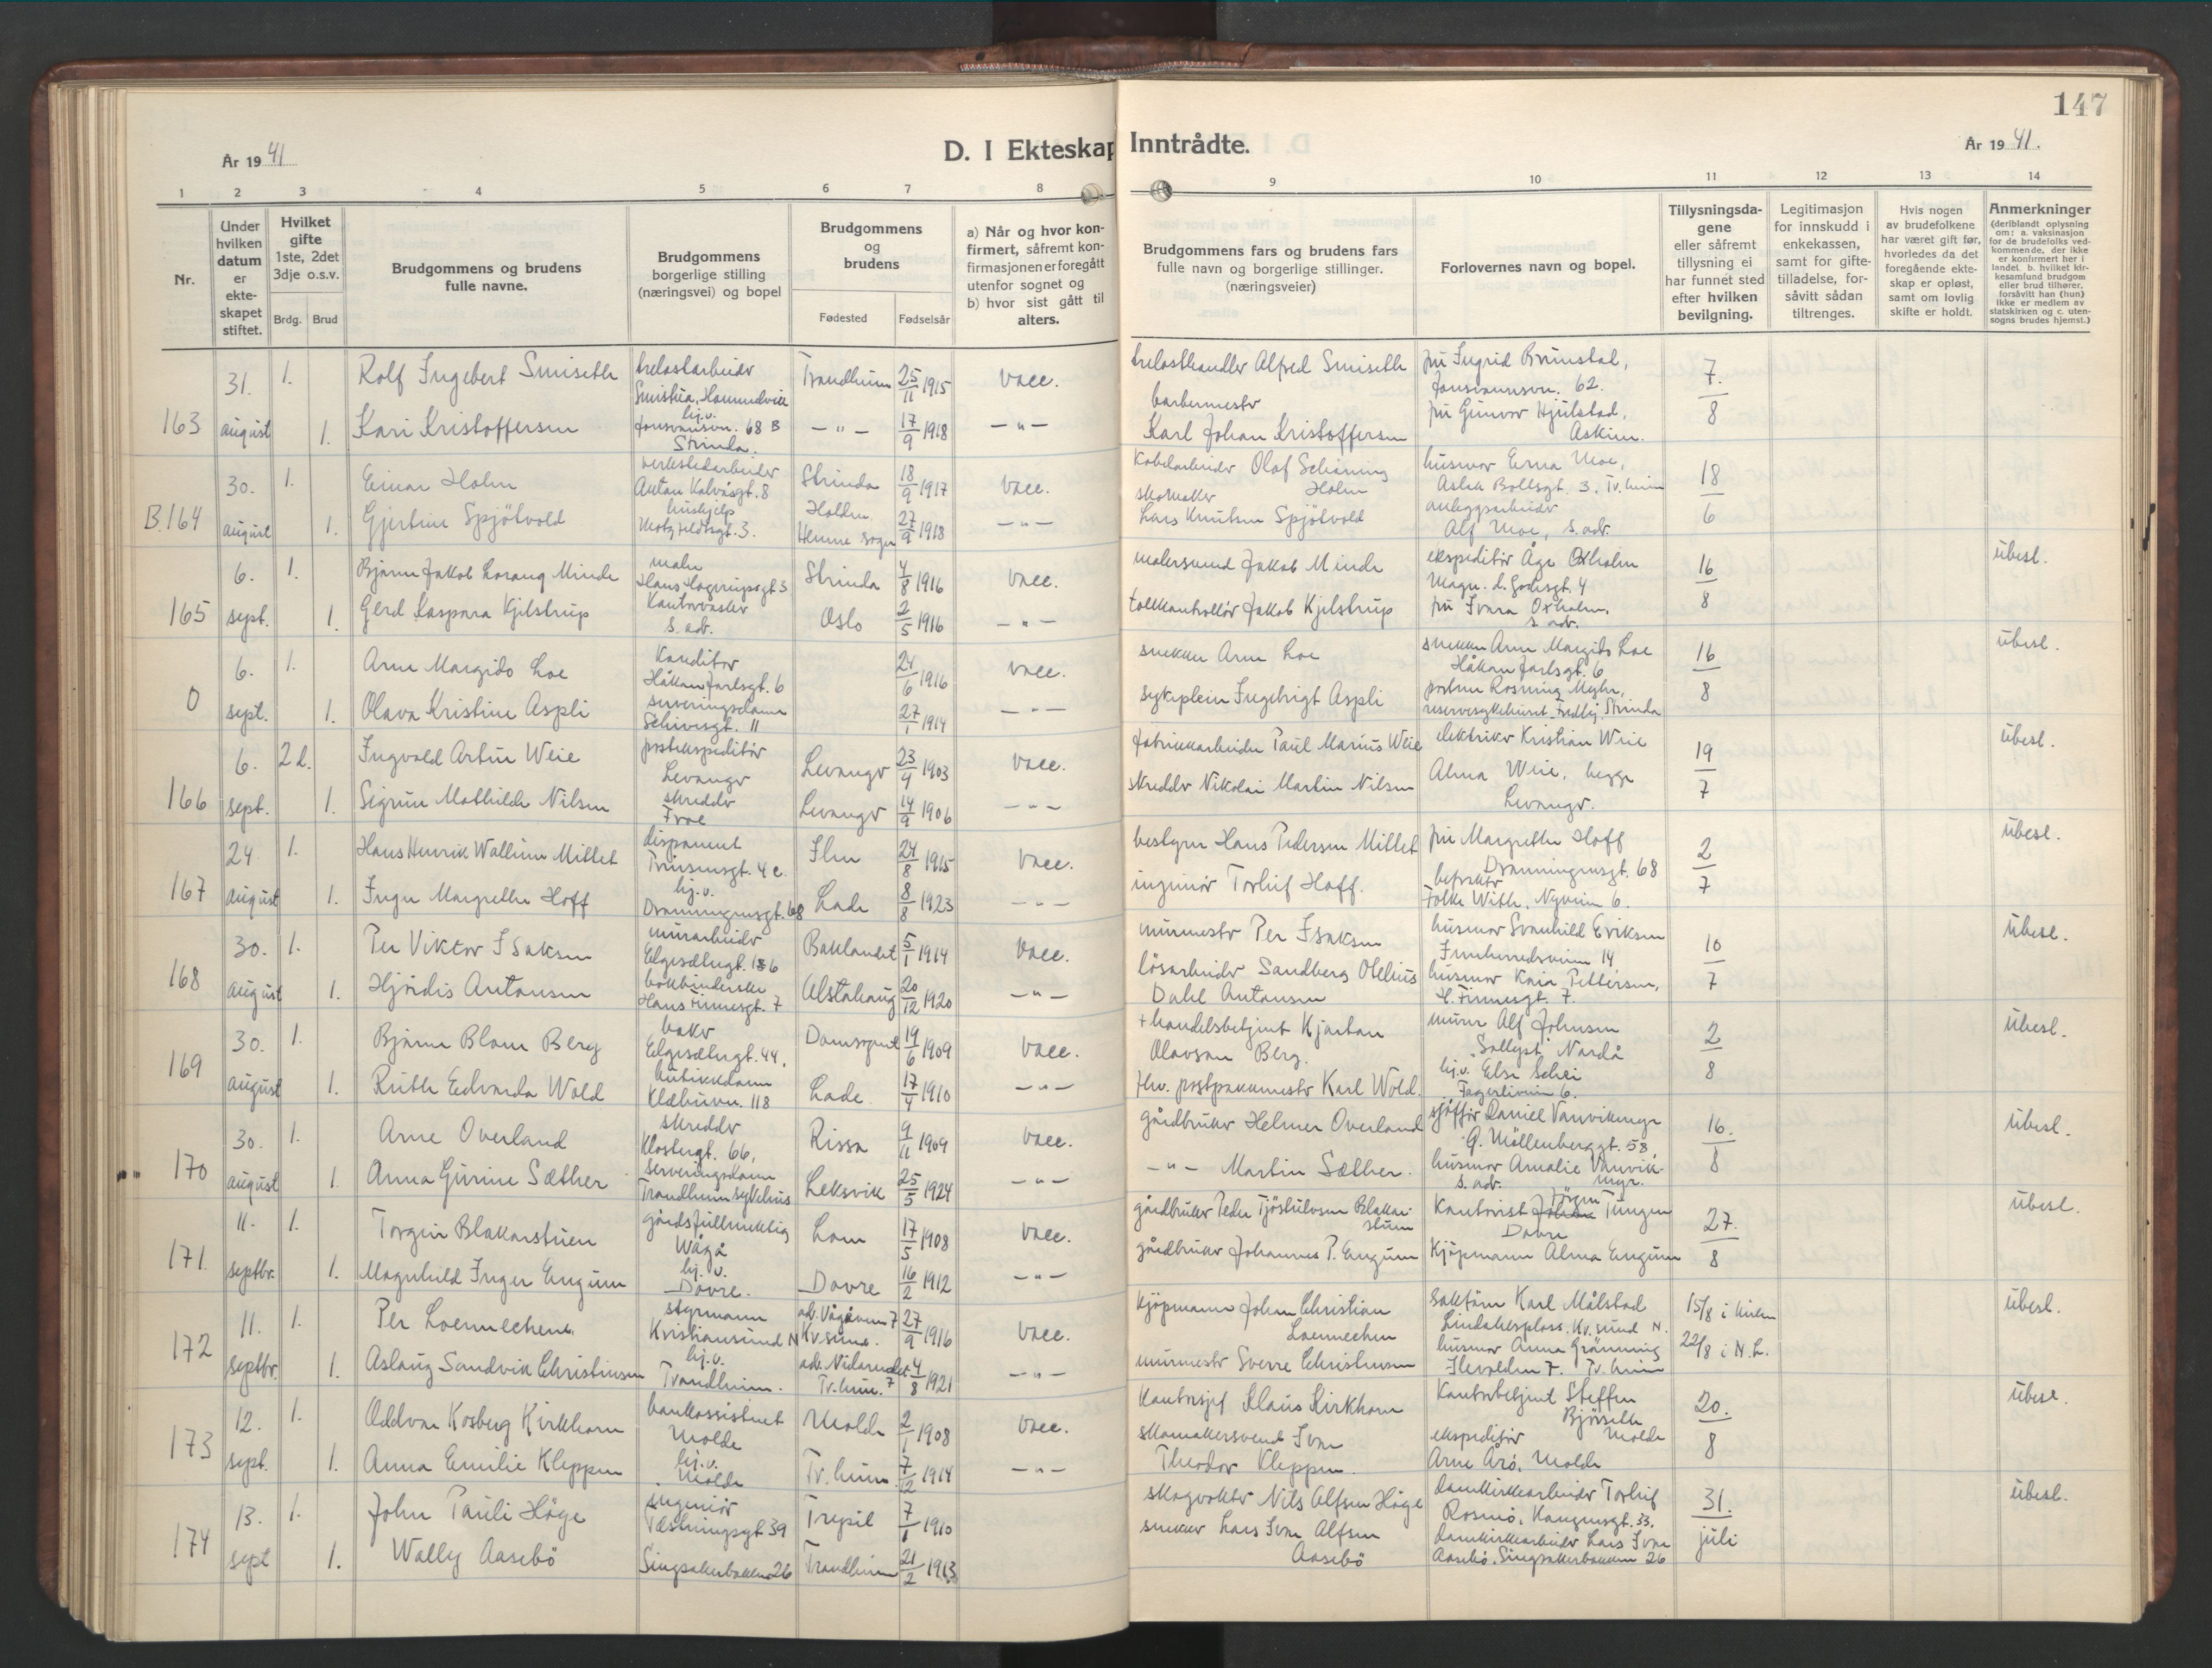 147
År 1941
D. I Ekteskap Inntrådte.
År 1941.
1 2 3 4 5 6 7 8 9 10 11 12 13 14
Nr.
Under hvilken datum er ekteskapet stiftet.
Hvilket gifte 1ste, 2det 3dje o.s.v.
Brdg. Brud
Brudgommens og brudens fulle navne.
Brudgommens borgerlige stilling (næringsvei) og bopel
Brudgommens og brudens
Fødested Fødselsår
a) Når og hvor konfirmert, såfremt konfirmasjonen er foregått utenfor sognet og b) hvor sist gått til alters.
Brudgommens fars og brudens fars fulle navn og borgerlige stillinger. (næringsveier)
Forlovernes navn og bopel.
Tillysningsdagene eller såfremt tillysning ei har funnet sted efter hvilken bevilgning.
Legitimasjon for innskudd i enkekassen, samt for giftetilladelse, forsåvitt sådan tiltrenges.
Hvis nogen av brudefolkene har været gift før, hvorledes da det foregående ekteskap er opløst, samt om lovlig skifte er holdt.
Anmerkninger (deriblandt oplysning om: a. vaksinasjon for de brudefolks vedkommende, der ikke er konfirmert her i landet, b. hvilket kirkesamfund brudgom eller brud tilhører, forsåvitt han (hun) ikke er medlem av statskirken og c. utensogns brudes hjemst.)
163 31. august 1. Rolf Ingebert Smiseth trelastarbeider Trondheim 25/11 1915 vacc. trelasthandler Alfred Smiseth fru Ingrid 62. 7./8
1. Kari Kristoffersen hj.v. Jonsvannsvn. 68 B Strinda. —"— 17/9 1918 —"— barbermester Karl Johan Kristoffersen fru Gunvor Hjulstad, Askim.
B.164 30. august 1. Einar Holm verkstedarbeider Anton Kalvåsgt. 8 Strinda 18/9 1917 vacc. Kabelarbeider Olaf Schöning Holm husmor Erna Moe, Aslak Boltsgt. 3. Tr.heim 18/6
1. Gjertine Spjötvold hushjelp Motzfeldtsgt. 3. Hemne sogn 27/9 1918 —"— skomaker Lars Knutsen Spjötvold anleggsarbeider Alf Moe, s. adr.
165 6. sept. 1. Bjarne Jakob Lorang Minde maler Hans Hagerupsgt 3 Strinda 4/8 1916 vacc. malersvend Jakob Minde ekspeditör Åge Oxholm Magn. d. Godesgt. 4 16/8 übesl.
1. Gerd Kaspara Kjelstrup Kontordame s. adr. Oslo 2/5 1916 —"— tollkontrollör Jakob Kjelstrup fru Ivara Oxholm, s. adr.
0 6. sept. 1. Arne Margido Loe Konditor Håkon Jarlsgt. 6 24/6 1916 vacc. snekker Arne Loe snekker Arne Margido Loe Håkon Jarlsgt. 6 16/8 übesl.
1. Olava Kristine Aspli serveringsdame Schivesgt. 11 27/1 1914 —"— sykepleier Ingebrigt Aspli
166 6. sept. 2d. Ingvald Artur Weie postekspeditör Levanger Levanger 23/4 1903 vacc. fabrikkarbeider Paul Marius Weie elektriker Kristian Weie 19/7 übesl.
1. Sigrun Mathilde Nilsen skredder Levanger 14/9 1906 —"— skredder Nikolai Martin Nilsen Alma Weie, begge Levanger.
167 24. august 1. Hans Henrik Wallum Millet disponent Prinsensgt. 4 c. Ilen 24/8 1915 vacc. bestyrer Hans Pedersen Millet fru Margrethe Hoff Dronningensgt. 68 2/7 übesl.
1. Inger Margrethe Hoff hj.v. Dronningensgt. 68 Lade 8/8 1923 —"— ingeniör Torleif Hoff. Folke With, Nyveien 6.
168 30. august 1. Per Viktor Isaksen murarbeider Elgesætergt. Baklandet 5/1 1914 vacc. murmester Per Isaksen husmor Svanhild Eriksen Innherredsveien 14 10/7 übesl.
1. Hjördis Antonsen bokbinderske Hans Finnesgt. 7 Alstahaug 20/12 1920 —"— lösarbeider Sandberg Otelius Dahl Antonsen husmor Kaia Pettersen, H. Finnesgt. 7.
169 30. august 1. Bjarne Blom Berg baker Elgesætergt. 44. Domsognet 19/6 1909 vacc. + handelsbetjent Kjartan Olavson Berg. murer Alf Johnsen "Sollyst" Nardo 2/8 übesl.
1. Ruth Edvarda Wold butikkdame Klæbuvn. 118 Lade 17/4 1910 —"— fhv. postpakkmester Karl Wold. hj.v. Else Schei Fagerliveien 6.
170 30. august 1. Arne Overland skredder Klostergt. 66, Rissa 9/11 1909 vacc. gårdbruker Helmer Overland sjåför Daniel Vanvikmyr G. Möllenberggt. 58, 16./8 übesl.
1. Anna Gurine Sæther serveringsdame Trondheim sykehus Leksvik 25/5 1924 —"— —"— Martin Sæther. husmor Amalie Vanvikmyr. s. adr.
171. 11. septbr. 1. Torgeir Blakarstuen gårdsfullmektig Wågå Lom 17/5 1908 vacc. gårdbruker Peder Tjöstulvsen Blakarstuen Kontorist Jörgen Tungen Dovre 27./8 übesl.
1. Magnhild Inger Engum hj.v. Dovre. Dovre 16/2 1912 —"— gårdbruker Johannes P. Engum Kjöpmann Alma Engum
172 11. septbr. 1. Per Loennechen styrmann Kristiansund N Kr.sund. 27/9 1916 vacc. Kjöpmann Johan Christian Loennechen Karl Målstad Kr.sund N. 15/8 i kirken übesl.
1. Aslaug Sandvik Christensen hj.v. Trondheim. Tr.heim. 4/8 1921 —"— murmester Sverre Christensen husmor Anna Grönning Ilevolden 7. Tr.heim 22/8 i N.L.
173 12. sept. 1. Oddvar Kosberg Kirkhorn bankassistent Molde Molde 2/1 1908 vacc. Kontorsjef Klaus Kirkhorn Kontorbetjent Steffen Björseth Molde 20./8 übesl.
1. Anna Emilie Kleppen hj.v. Molde Tr.heim 7/12 1914 —"— skomakersvend Ivar Theodor Kleppen. ekspeditör Arne Årö, Molde
174 13. sept 1. John Pauli Höge ingeniör Vestringsgt 39 Trysil 7/1 1910 skogvokter Nils Alfsen Höge Domkirkearbeider Torleif Rosmö, Kongensgt. 33. 31. juli übesl.
1. Wally Aasebö Singsakerbakken 26 Trondheim 21/2 1913 snekker Lars Ivar Alfsen Aasebö Domkirkearbeider Lars Ivar Aasebö, Singsakerbakken 26